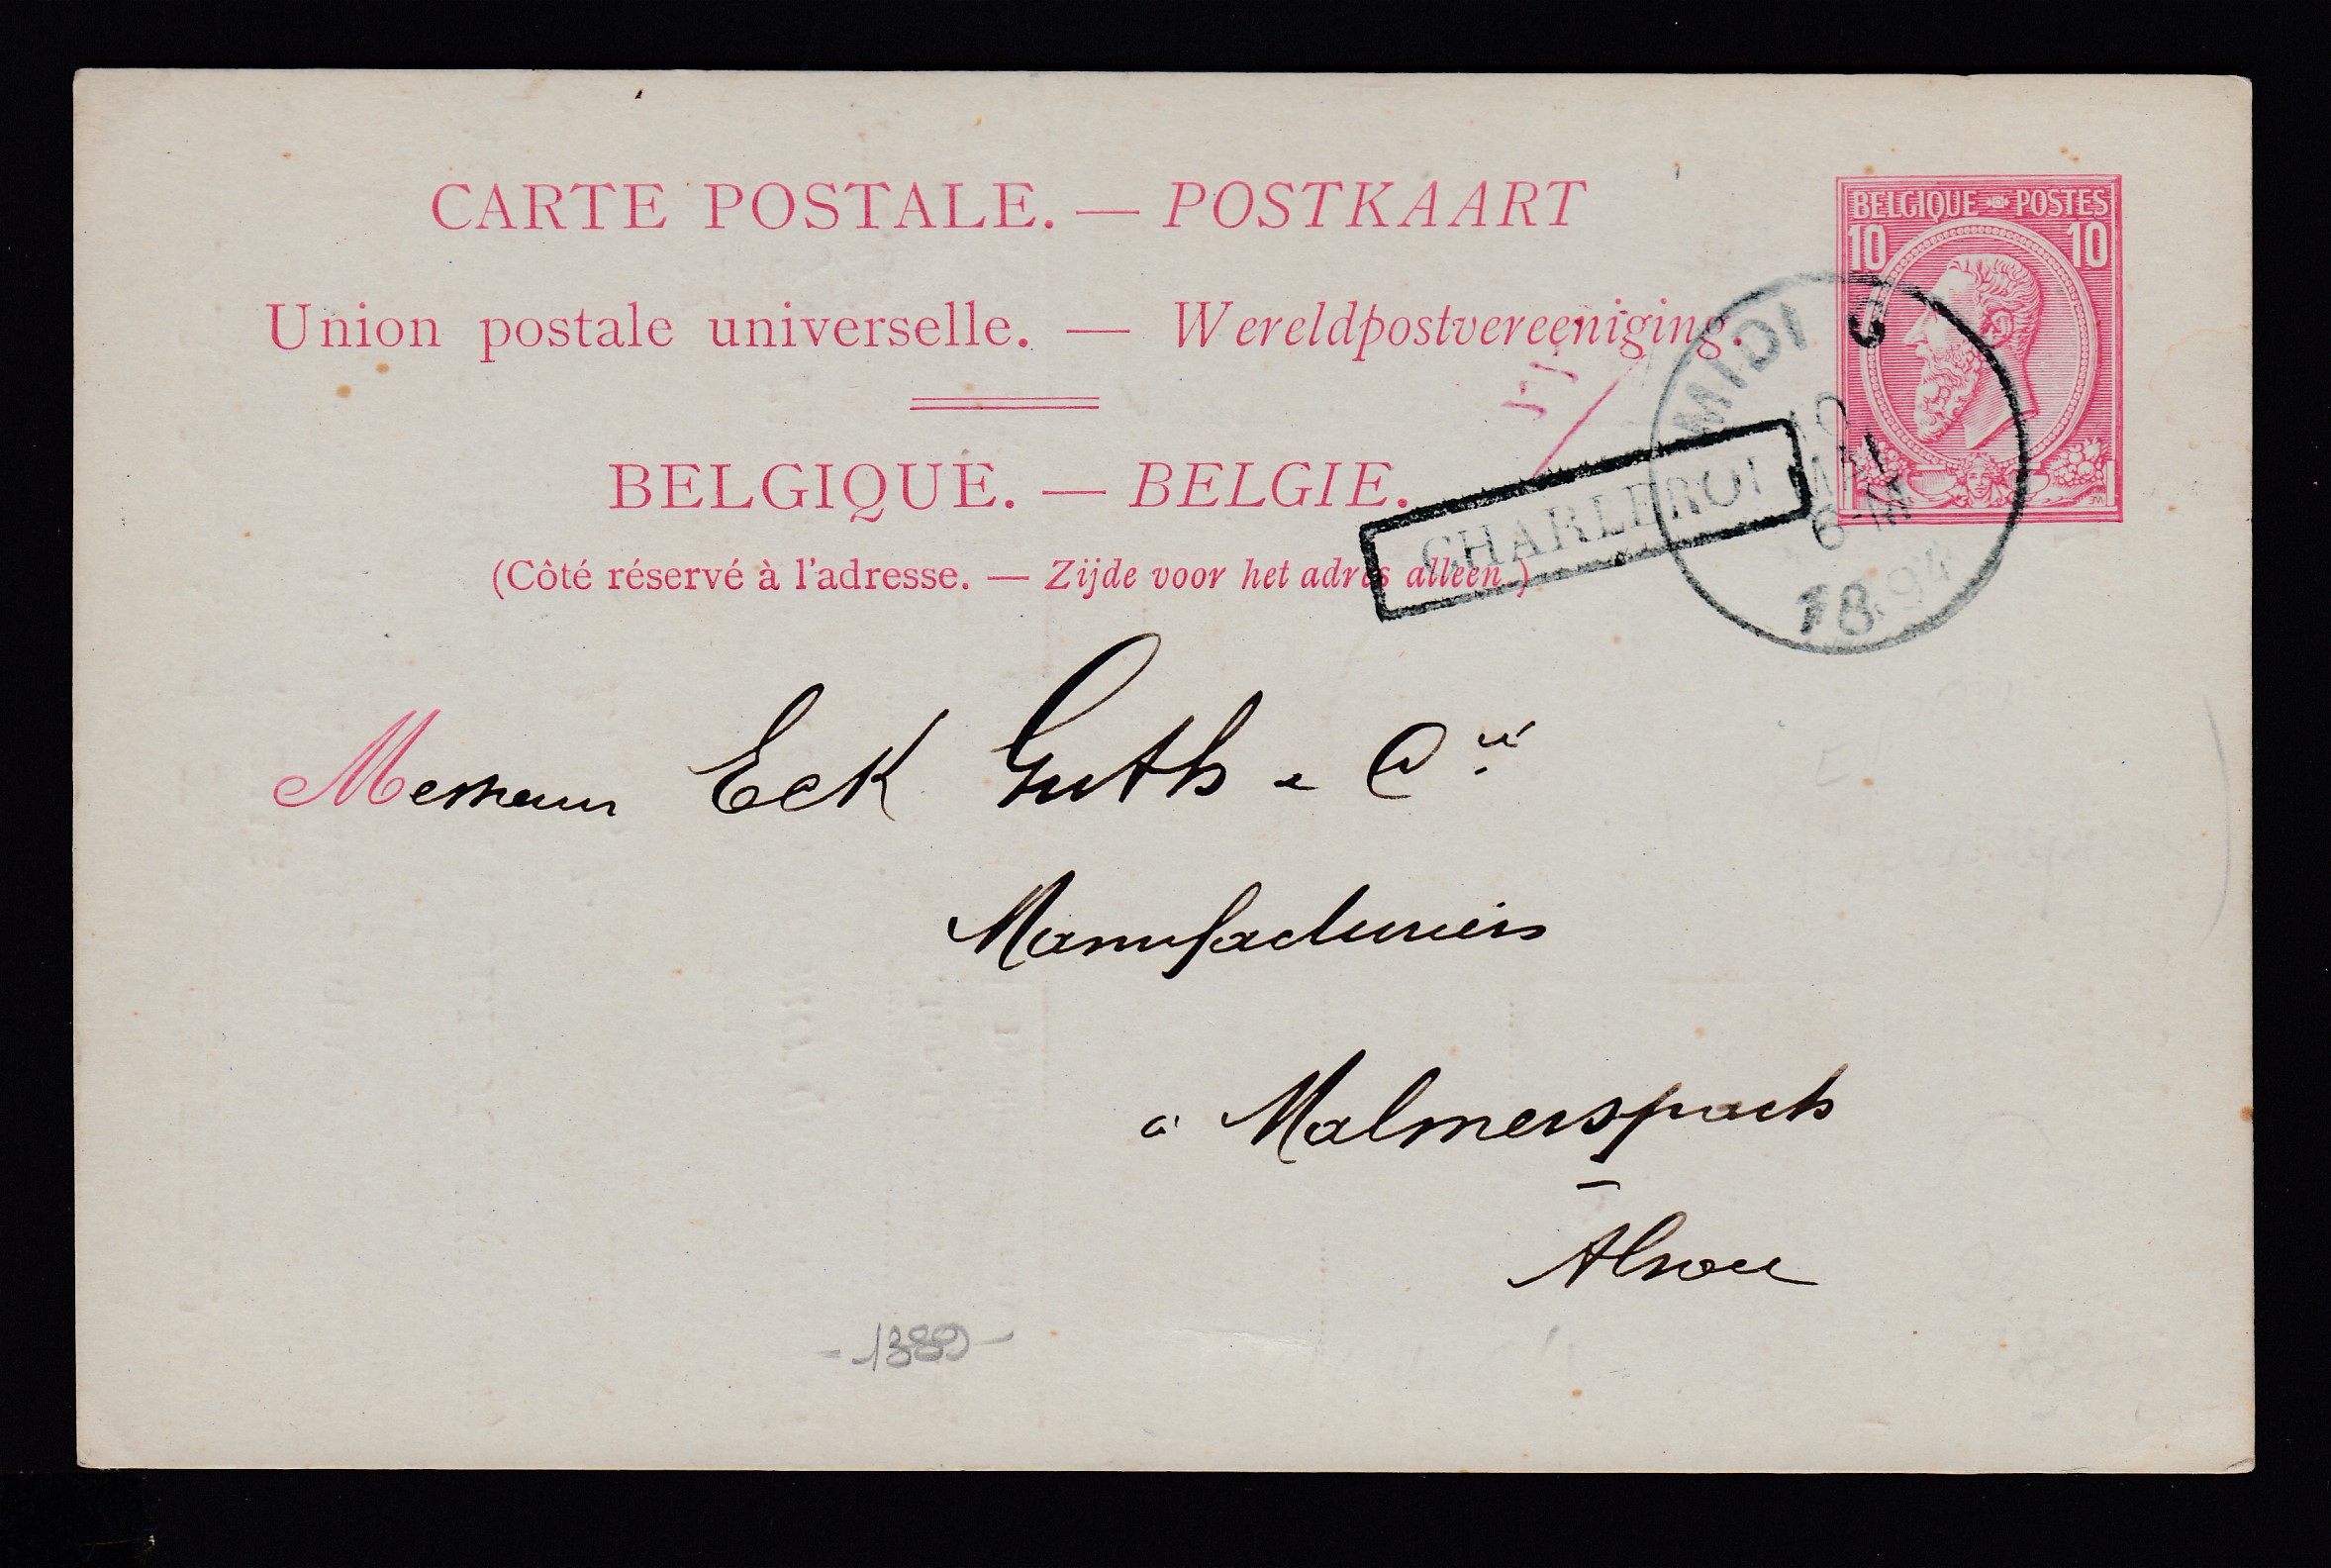 CARTE POSTALE. — POSTKAART
BELGIQUE POSTES
10 10
Union postale universelle. — Wereldpostvereeniging.
BELGIQUE. — BELGIE.
(Côté réservé à l'adresse. — Zijde voor het adres alleen.)
MIDI
10
MAI
6-M
1894
CHARLEROI
Messieurs Eck Guth & Cie
Manufacturiers
à Malmerspach
Alsace
-1389-